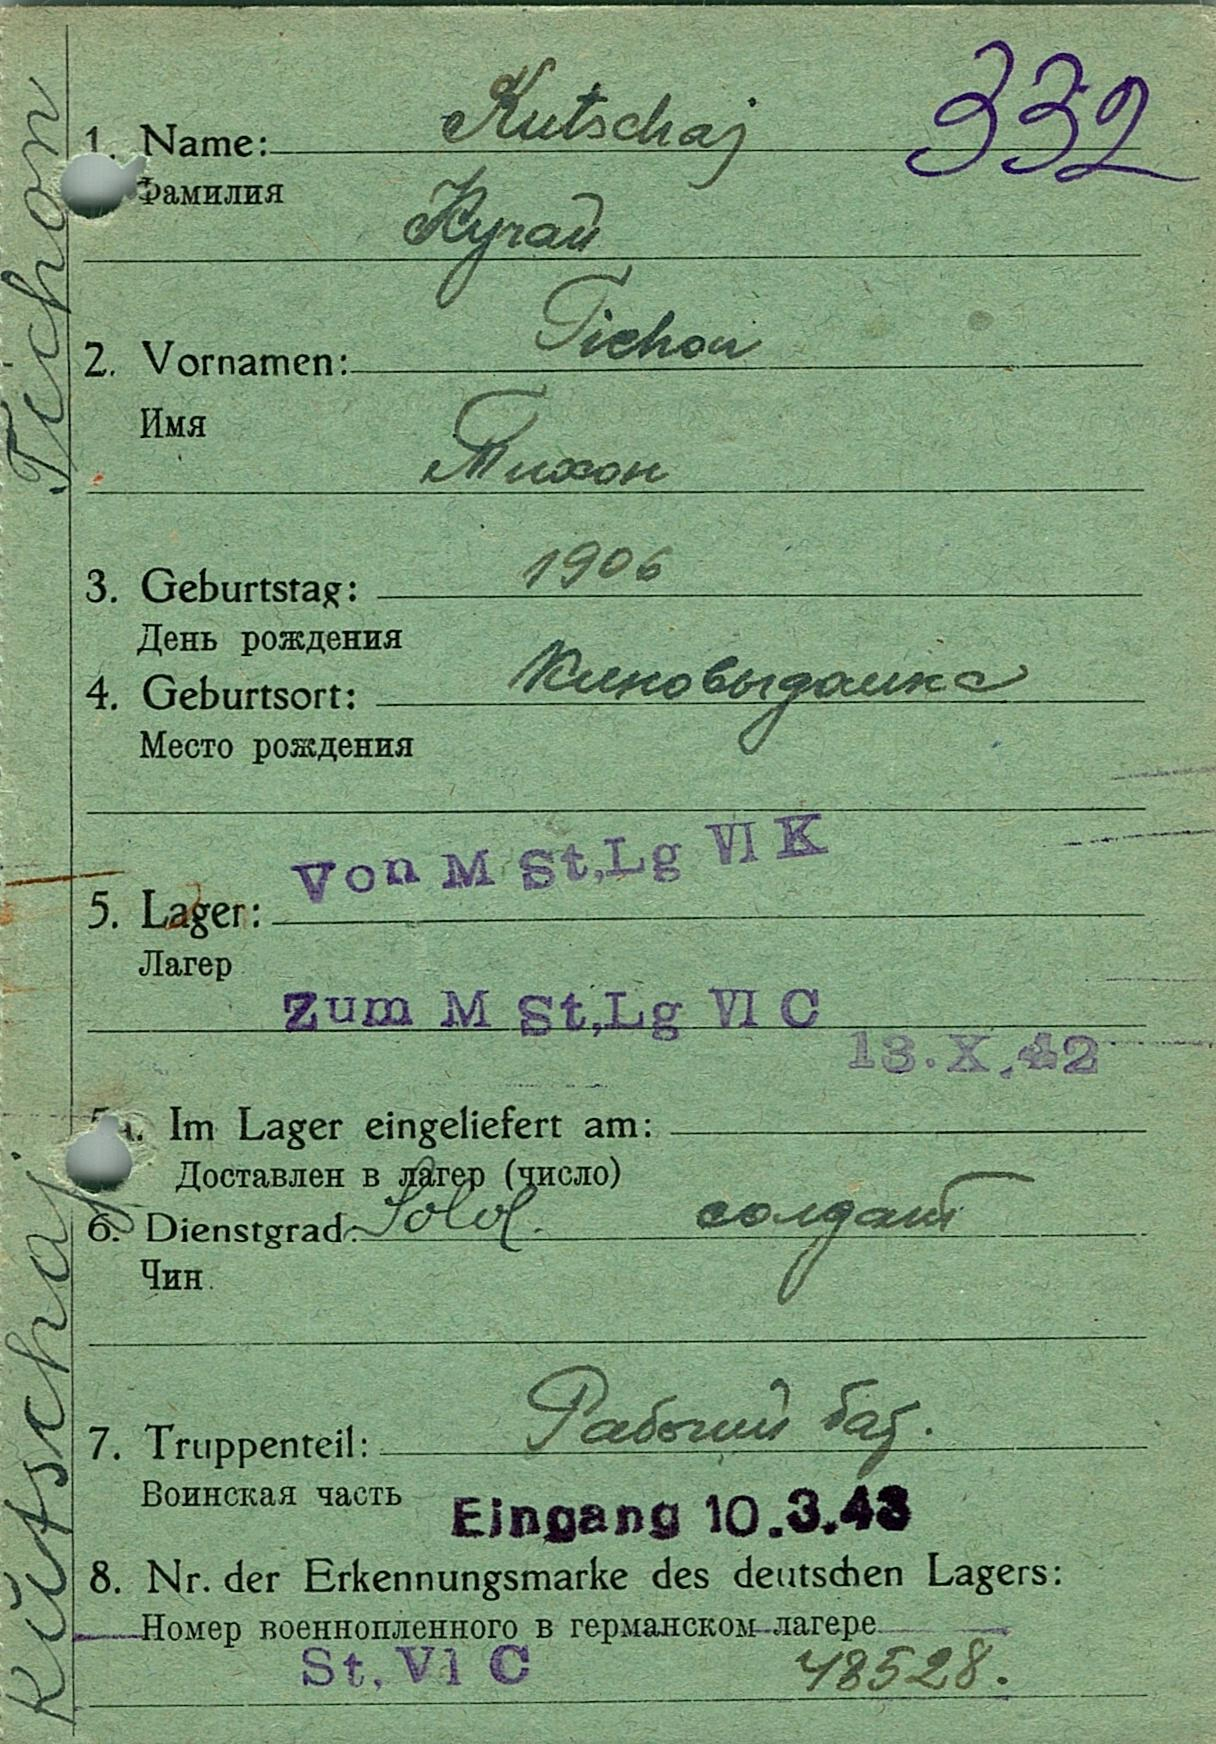 332
1. Name: Kutschaj
Фамилия
Кучай
2. Vornamen: Tichon
Имя
Тихон
3. Geburtstag: 1906
День рождения
4. Geburtsort:
Место рождения
Von M St,Lg VI K
5. Lager:
Лагер
Zum M St,Lg VI C
13.X.42
5a. Im Lager eingeliefert am:
Доставлен в лагер (число)
6. Dienstgrad: Sold. солдат
Чин
7. Truppenteil: Рабочий бат.
Воинская часть
Eingang 10.3.43
8. Nr. der Erkennungsmarke des deutschen Lagers:
Номер военнопленного в германском лагере
St, VI C 48528.
Kutschaj Tichon